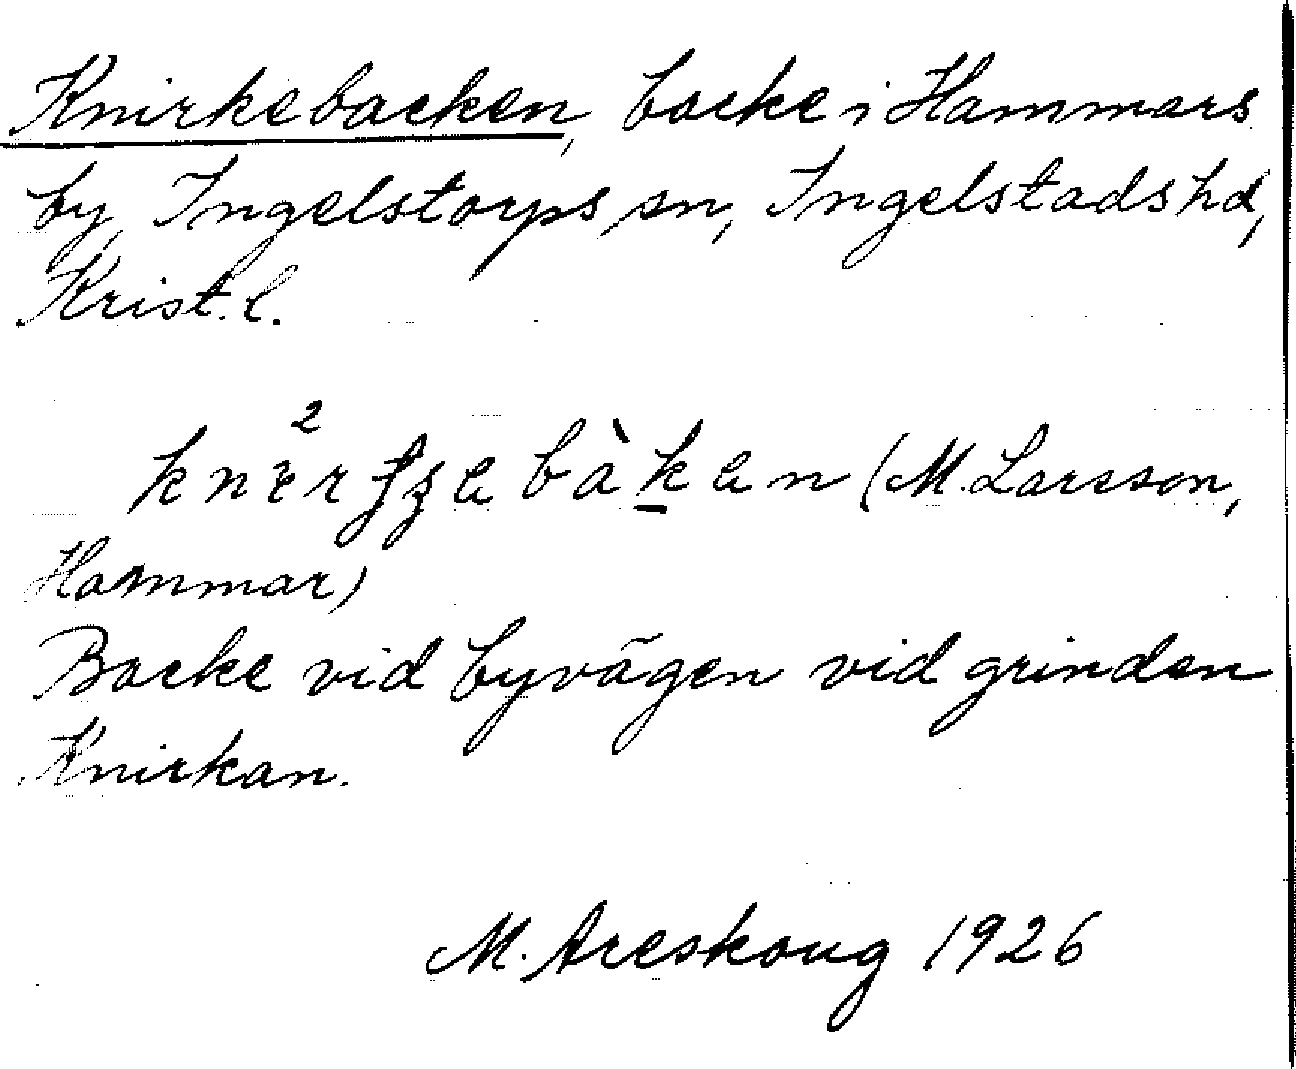 Knirkebacken, backe i Hammars
by, Ingelstorps sn, Ingelstads hd,
Krist. l.
(M. Larsson,
Hammar)
Backe vid byvägen vid grinden
Knirkan.
M. Areskoug 1926